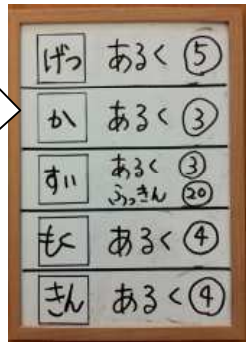 げつ あるく ⑤
か あるく ③
すい あるく ③
ふっきん ⑳
もく あるく ④
きん あるく ④